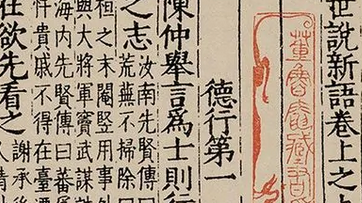 世說新語卷上之
德行第一
陳仲舉言爲士則行
之志
汝南先賢傳
荒蕪不掃除曰
桓之末閹豎用事外
與大將軍竇武謀誅
海內先賢傳曰蕃
忤貴戚不得在
在欲先看之
謝承後